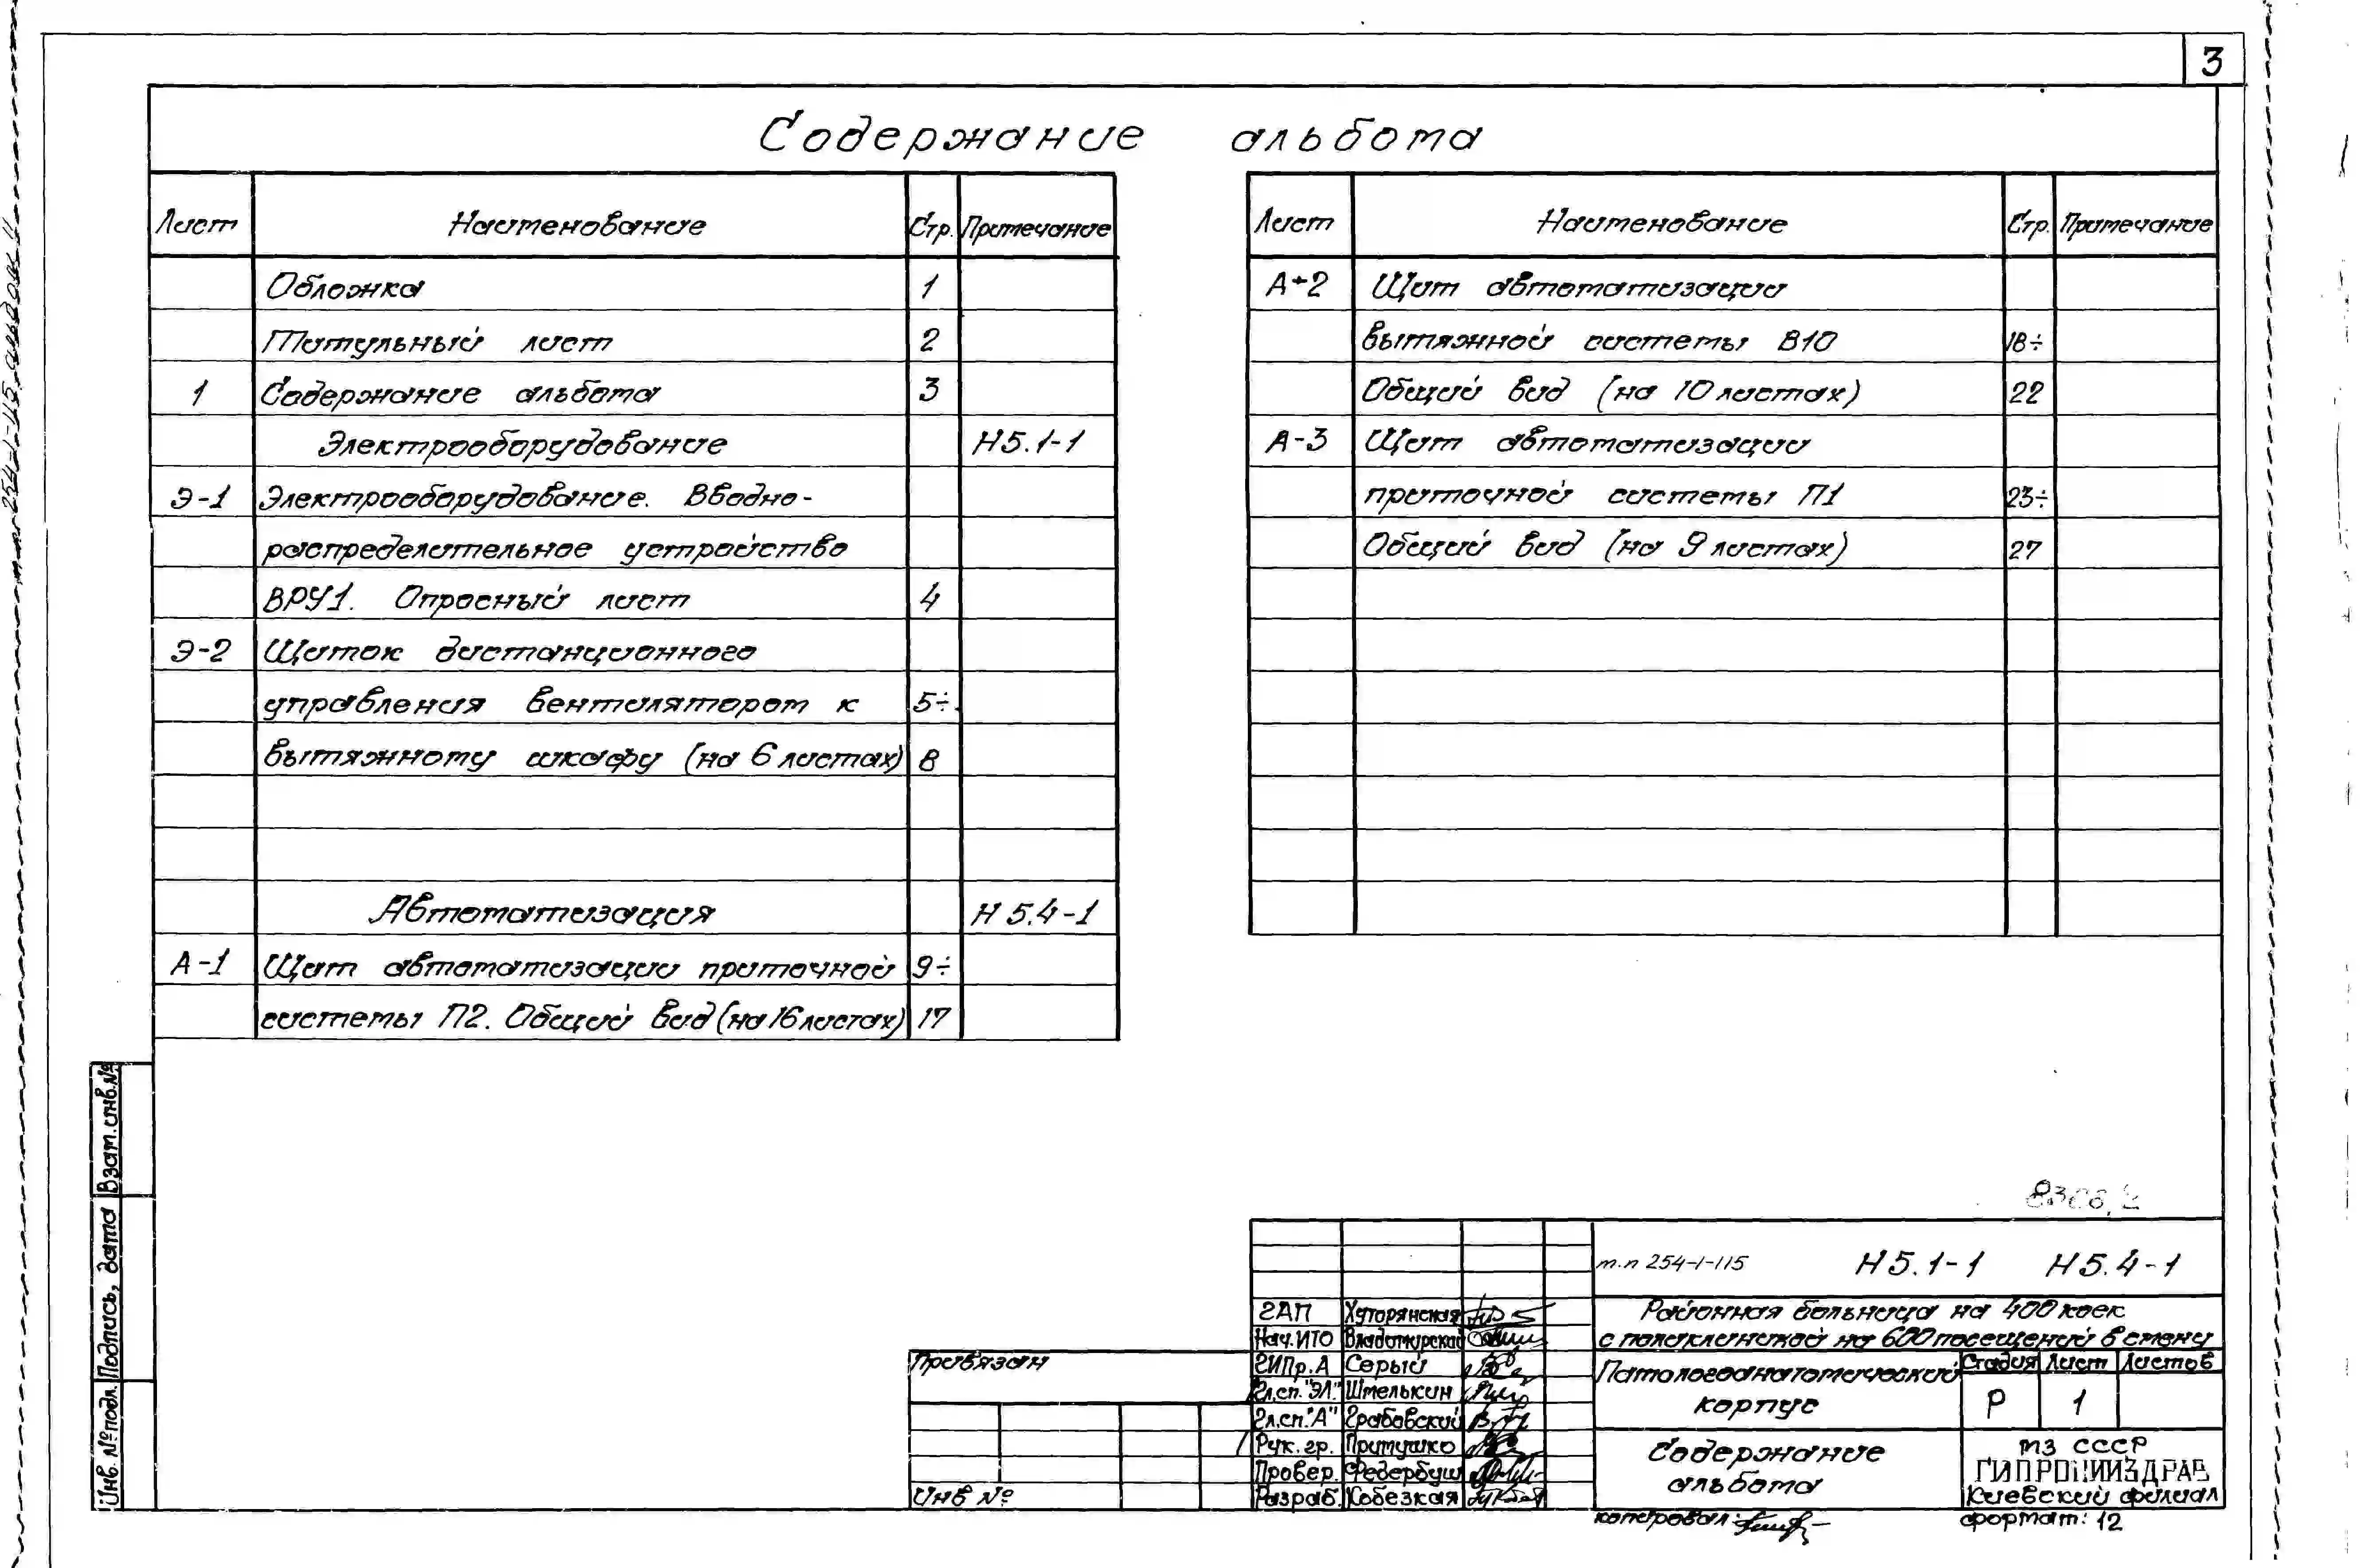 3
Содержание альбома
Лист Наименование Стр. Примечание
Обложка 1
Титульный лист 2
1 Содержание альбома 3
Электрооборудование Н5.1-1
Э-1 Электрооборудование. Вводно-
распределительное устройство
ВРУ1. Опросный лист 4
Э-2 Щиток дистанционного
управления вентилятором к 5÷
вытяжному шкафу (на 6 листах) 8
Автоматизация Н 5.4-1
А-1 Щит автоматизации приточной 9÷
системы П2. Общий вид (на 16 листах) 17
Лист Наименование Стр. Примечание
А-2 Щит автоматизации
вытяжной системы В10 18÷
Общий вид (на 10 листах) 22
А-3 Щит автоматизации
приточной системы П1 23÷
Общий вид (на 9 листах) 27
Взам. инв. №
Подпись, дата
Инв. № подл.
т.п 254-1-115 Н5.1-1 Н5.4-1
Районная больница на 400 коек
с поликлиникой на 600 посещений в смену
Патологоанатомический
корпус
Стадия Лист Листов
Р 1
Содержание
альбома
МЗ СССР
ГИПРОНИИЗДРАВ
Киевский филиал
ГАП Хуторянская
Нач. ИТО Владимирский
ГИПр. А Серый
Гл.сп. "ЭЛ." Шмелькин
Гл.сп. "А" Грабовский
Рук. гр. Притушко
Провер. Федербуш
Разраб. Кобезкая
Привязан
Инв №
копировал:
формат: 12